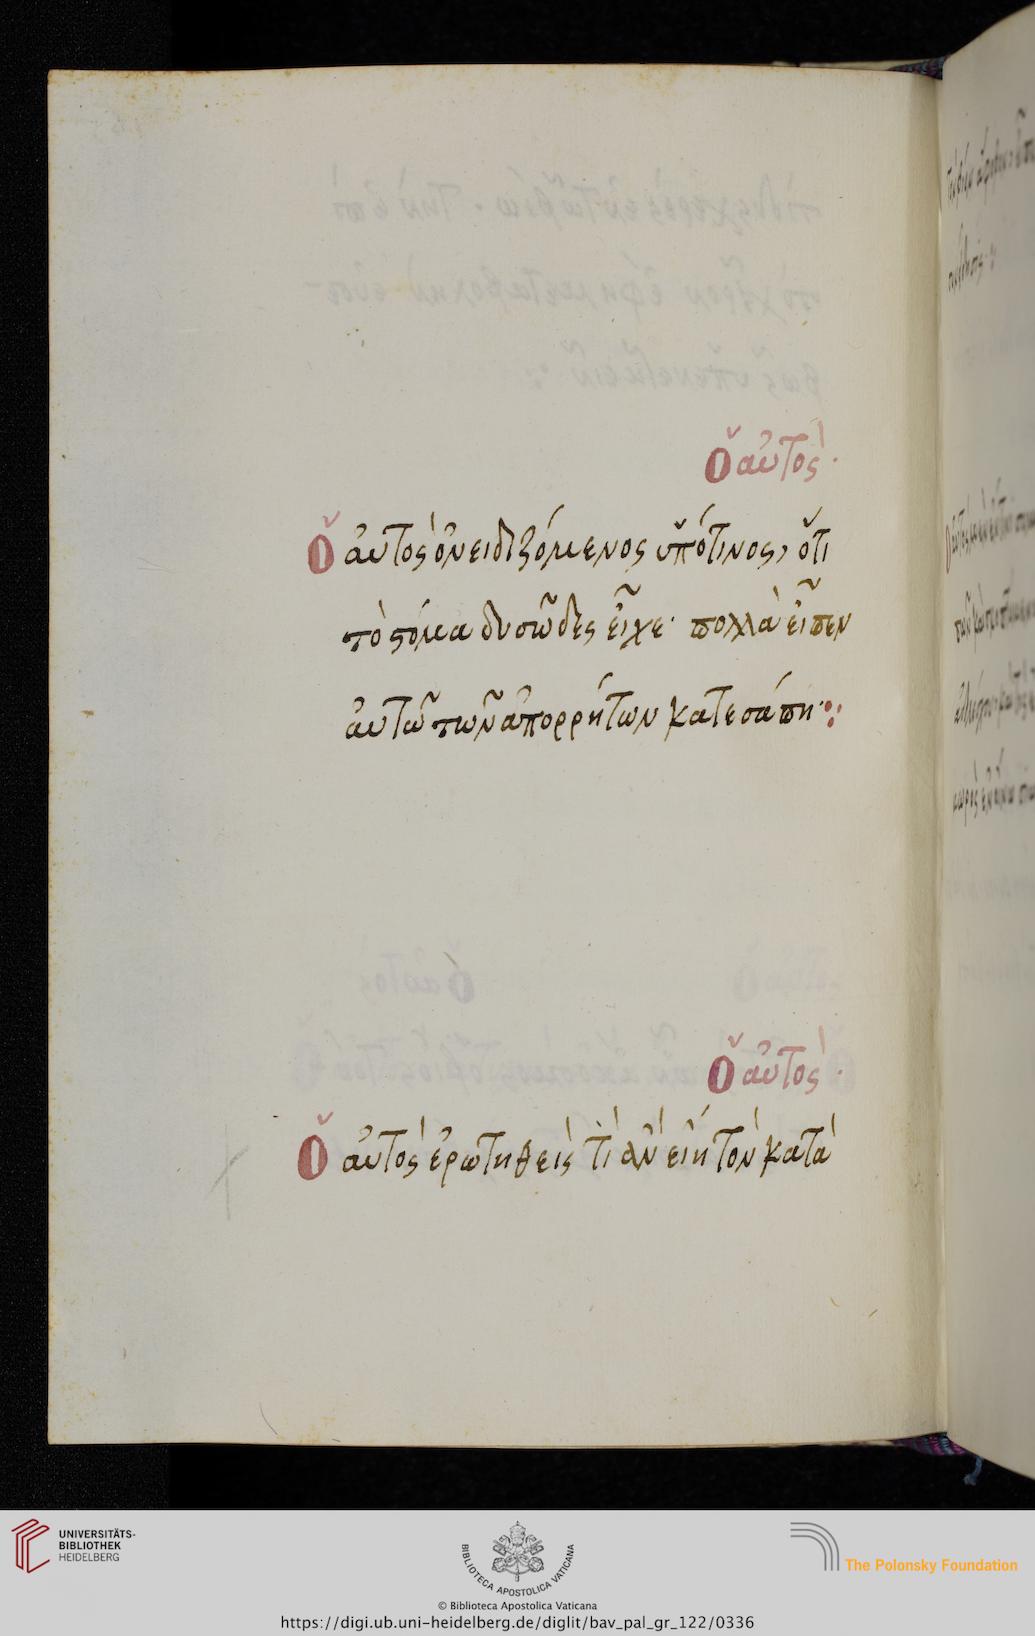 Ὁ αὐτὸς·
Ὁ αὐτὸς ὀνειδιζόμενος ὑπό τινος, ὅτι
τὸ στόμα δυσῶδες εἶχε· πολλὰ εἶπεν
αὐτῶ τῶν ἀπορρήτων κατεσάπη·
Ὁ αὐτὸς·
Ὁ αὐτὸς ἐρωτηθεὶς τί ἂν εἴη τὸν κατὰ
UNIVERSITÄTS-
BIBLIOTHEK
HEIDELBERG
BIBLIOTECA APOSTOLICA VATICANA
The Polonsky Foundation
© Biblioteca Apostolica Vaticana
https://digi.ub.uni-heidelberg.de/diglit/bav_pal_gr_122/0336